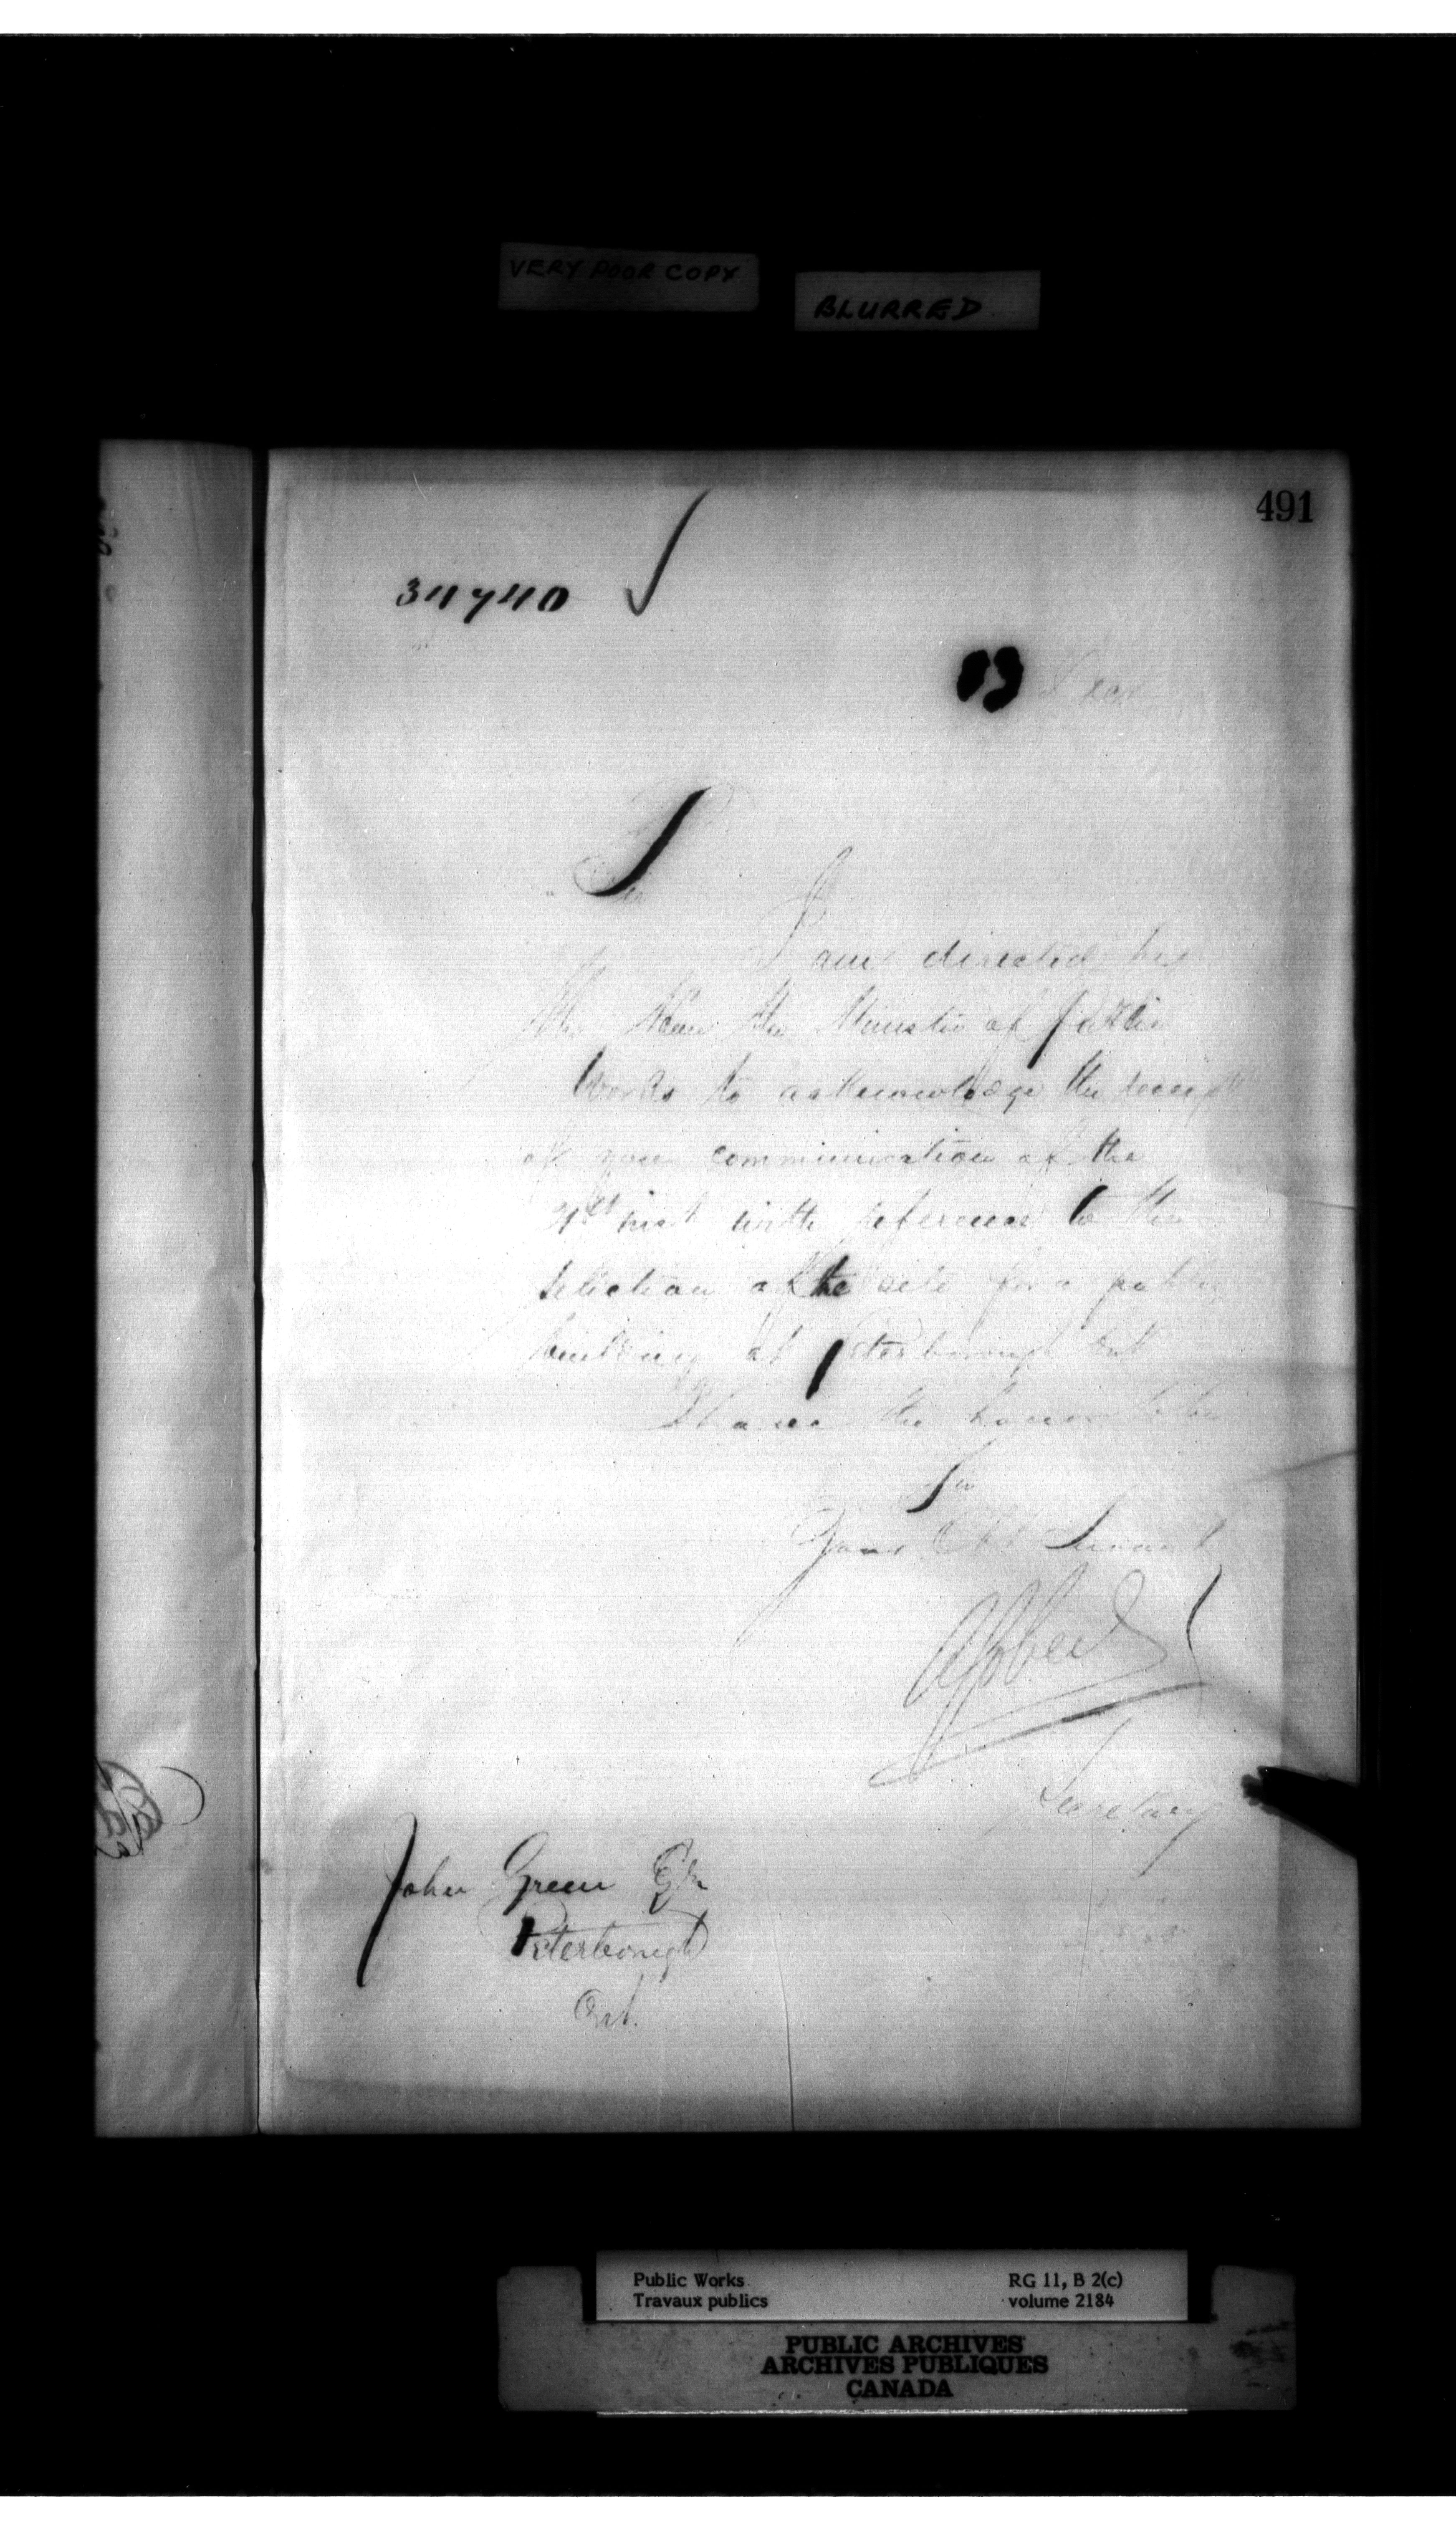 VERY POOR COPY
BLURRED
491
34740
Sir
I am directed by
the Hon the Minister of Public
Works to acknowledge the receipt
of your communication of the
inst with reference to the
selection of the site for a public
building at Peterborough
I have the honor to be
Sir
Your Obt Servant
Secretary
John Green Esq
Peterborough
Ont.
Public Works
Travaux publics
RG 11, B 2(c)
volume 2184
PUBLIC ARCHIVES
ARCHIVES PUBLIQUES
CANADA